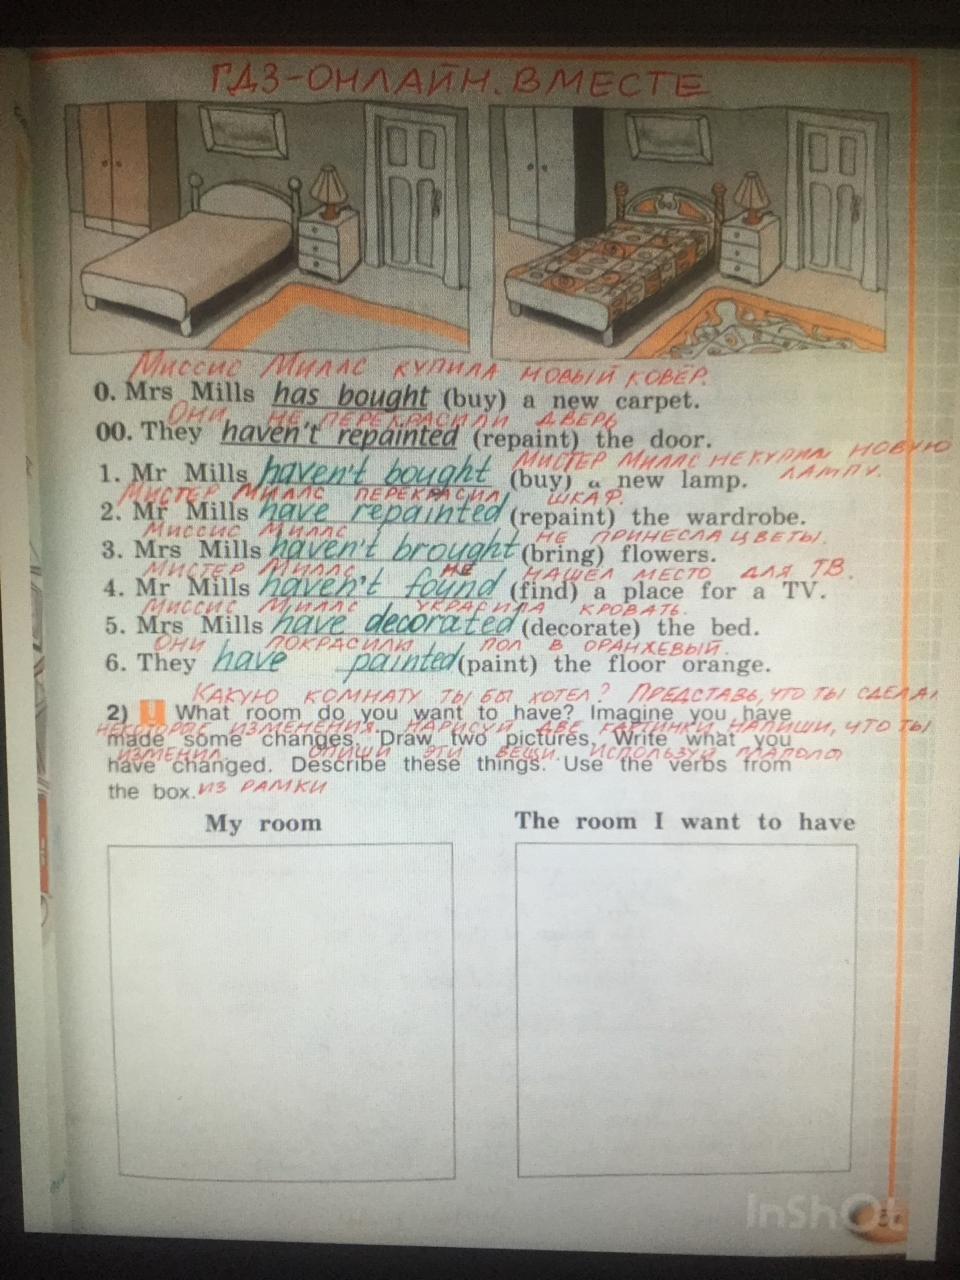 ГДЗ-ОНЛАЙН. ВМЕСТЕ
МИССИС МИЛЛС КУПИЛА НОВЫЙ КОВЁР.
0. Mrs Mills has bought (buy) a new carpet.
ОНИ НЕ ПЕРЕКРАСИЛИ ДВЕРЬ
00. They haven't repainted (repaint) the door.
МИСТЕР МИЛЛС НЕ КУПИЛ НОВУЮ
ЛАМПУ.
1. Mr Mills haven't bought (buy) a new lamp.
МИСТЕР МИЛЛС ПЕРЕКРАСИЛ ШКАФ.
2. Mr Mills have repainted (repaint) the wardrobe.
МИССИС МИЛЛС НЕ ПРИНЕСЛА ЦВЕТЫ.
3. Mrs Mills haven't brought (bring) flowers.
МИСТЕР МИЛЛС НЕ НАШЁЛ МЕСТО ДЛЯ ТВ.
4. Mr Mills haven't found (find) a place for a TV.
МИССИС МИЛЛС УКРАСИЛА КРОВАТЬ.
5. Mrs Mills have decorated (decorate) the bed.
ОНИ ПОКРАСИЛИ ПОЛ В ОРАНЖЕВЫЙ.
6. They have painted (paint) the floor orange.
КАКУЮ КОМНАТУ ТЫ БЫ ХОТЕЛ? ПРЕДСТАВЬ, ЧТО ТЫ СДЕЛАЛ
2) ! What room do you want to have? Imagine you have
НЕКОТОРЫЕ ИЗМЕНЕНИЯ. НАРИСУЙ ДВЕ КАРТИНКИ НАПИШИ, ЧТО ТЫ
made some changes. Draw two pictures. Write what you
ИЗМЕНИЛ. ОПИШИ ЭТИ ВЕЩИ. ИСПОЛЬЗУЙ ГЛАГОЛЫ
have changed. Describe these things. Use the verbs from
the box. ИЗ РАМКИ
My room
The room I want to have
InShot